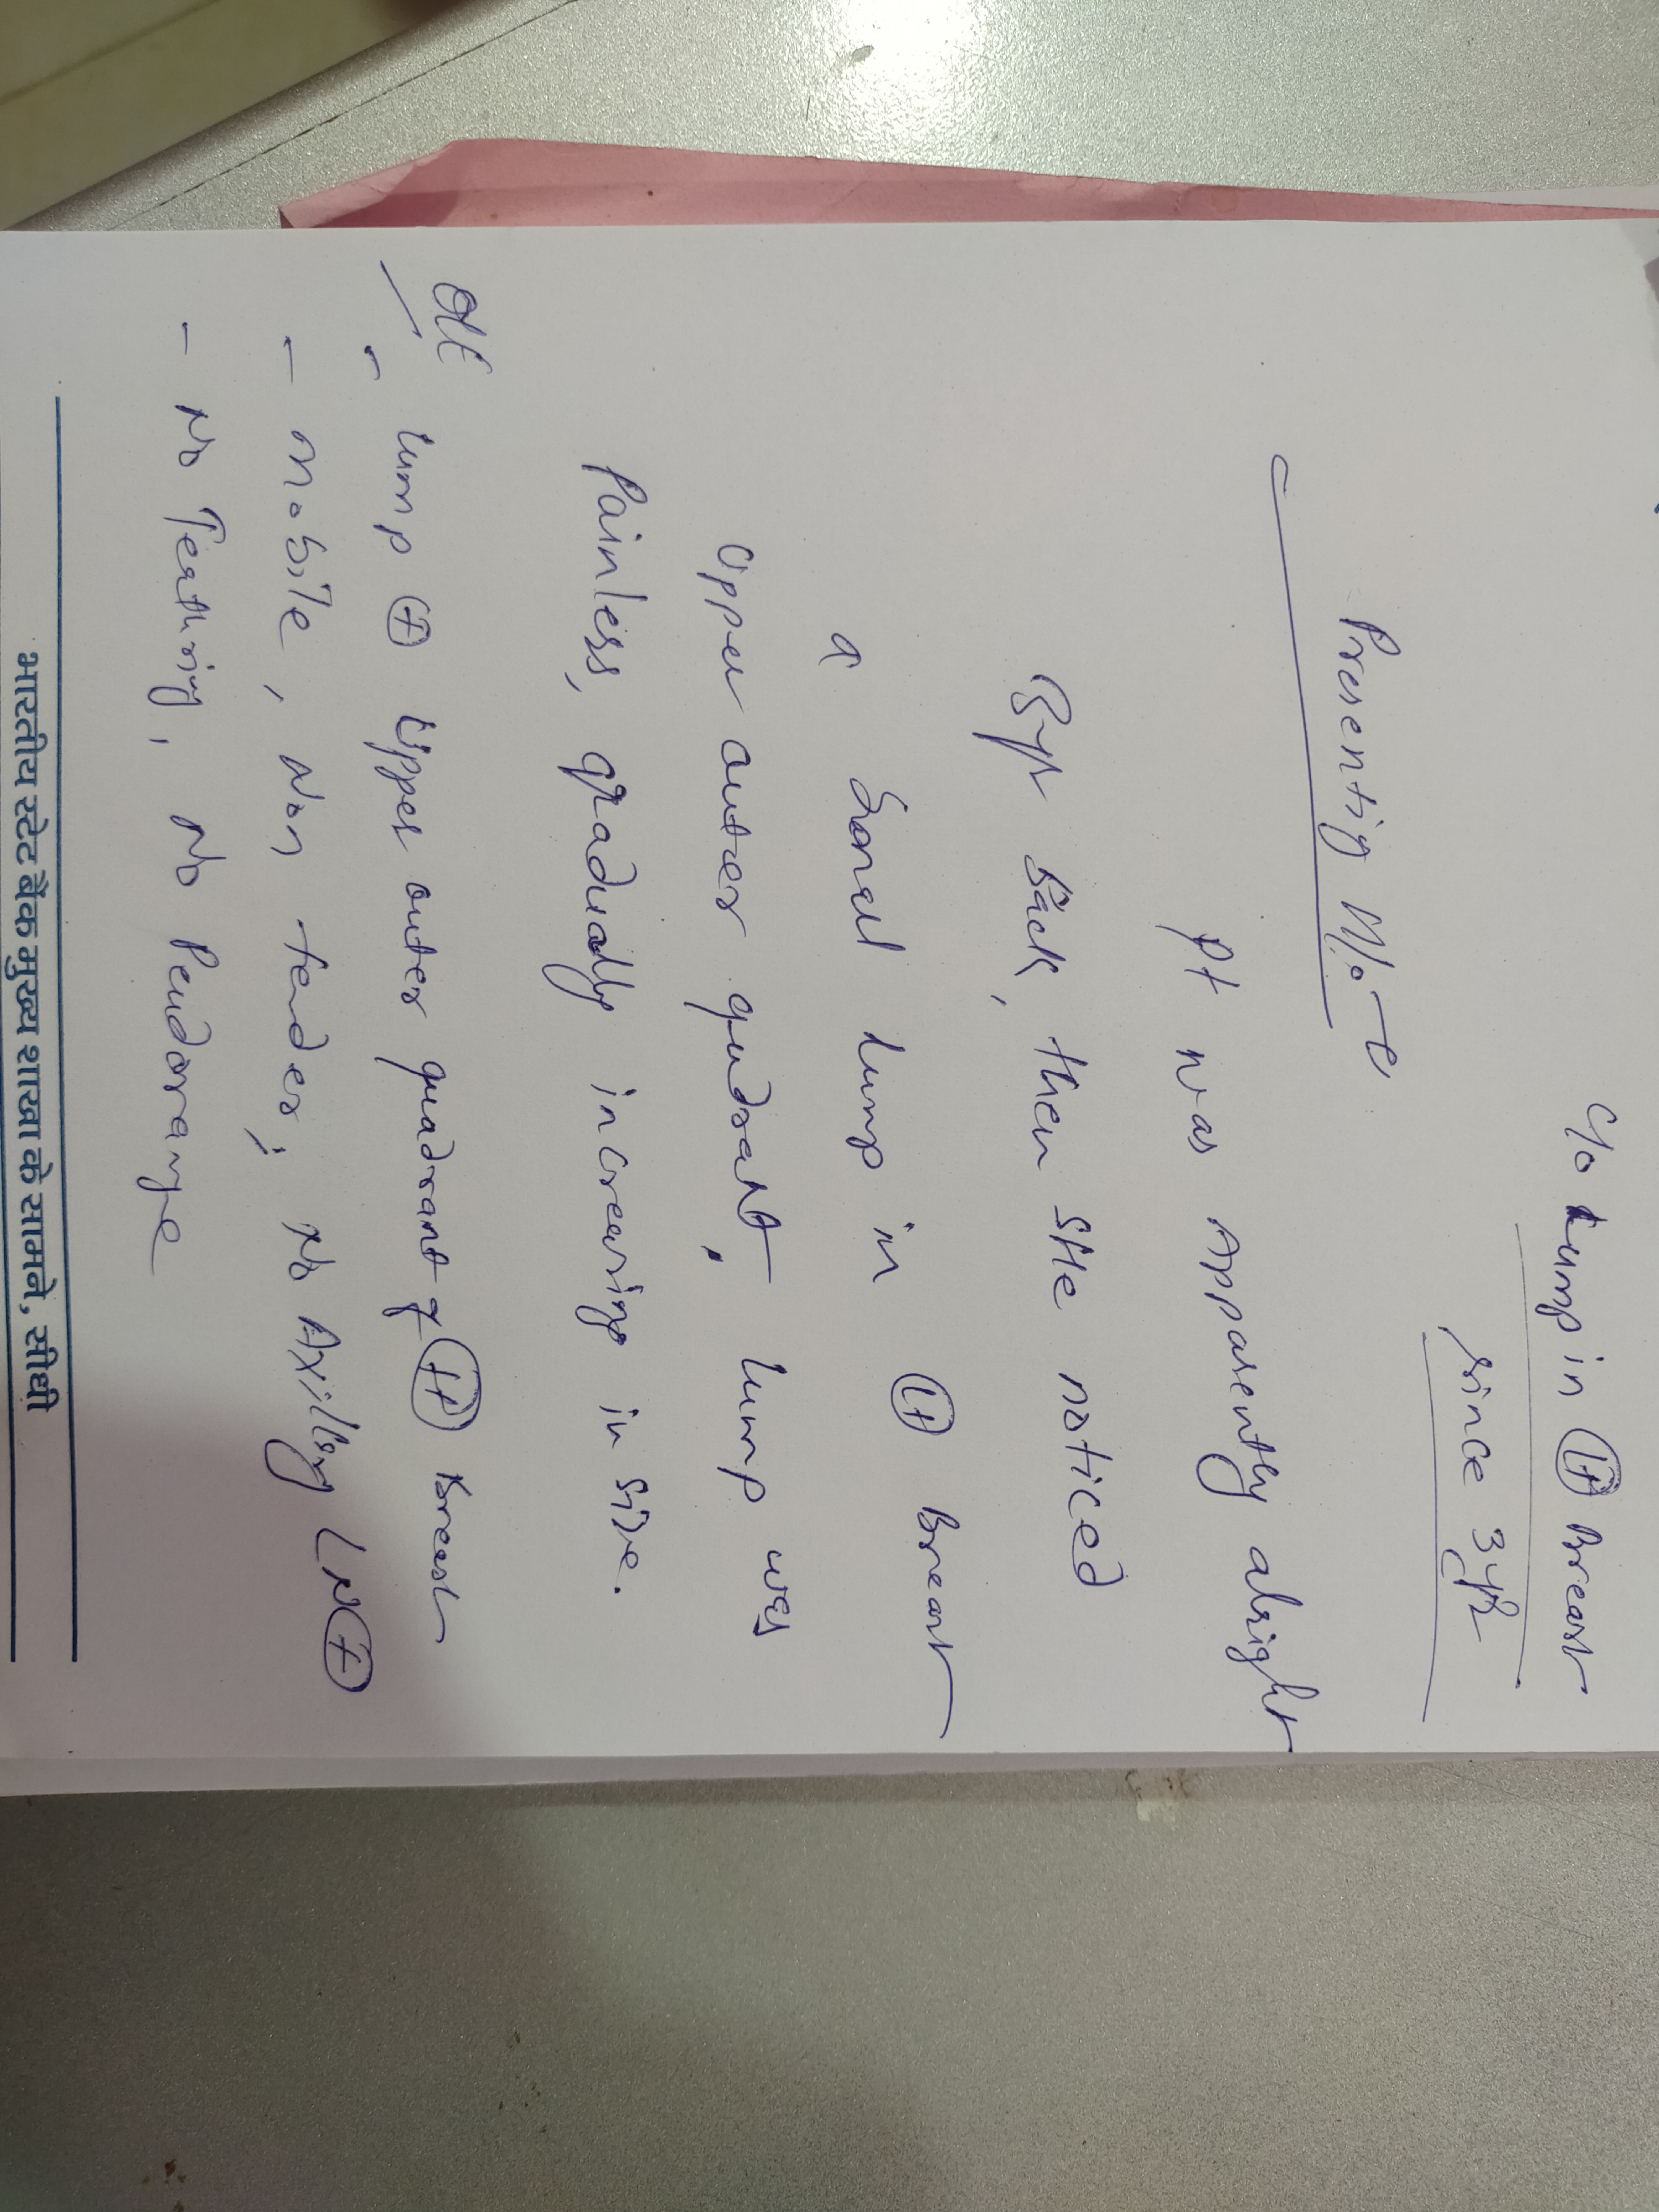 C/o Lump in Lt Breast
since 3yr
Presenting H/o
Pt was Apparently alright
3yr back, then she noticed
a Small lump in Lt Breast
Upper outer qudrant, lump was
Painless, gradually increasing in size.
O/E
- lump + Upper outer quadrant of Lt Breast
- mobile, Non tender, No Axillary LN +
- No Teathring, No Peudorange
भारतीय स्टेट बैंक मुख्य शाखा के सामने, सीधी